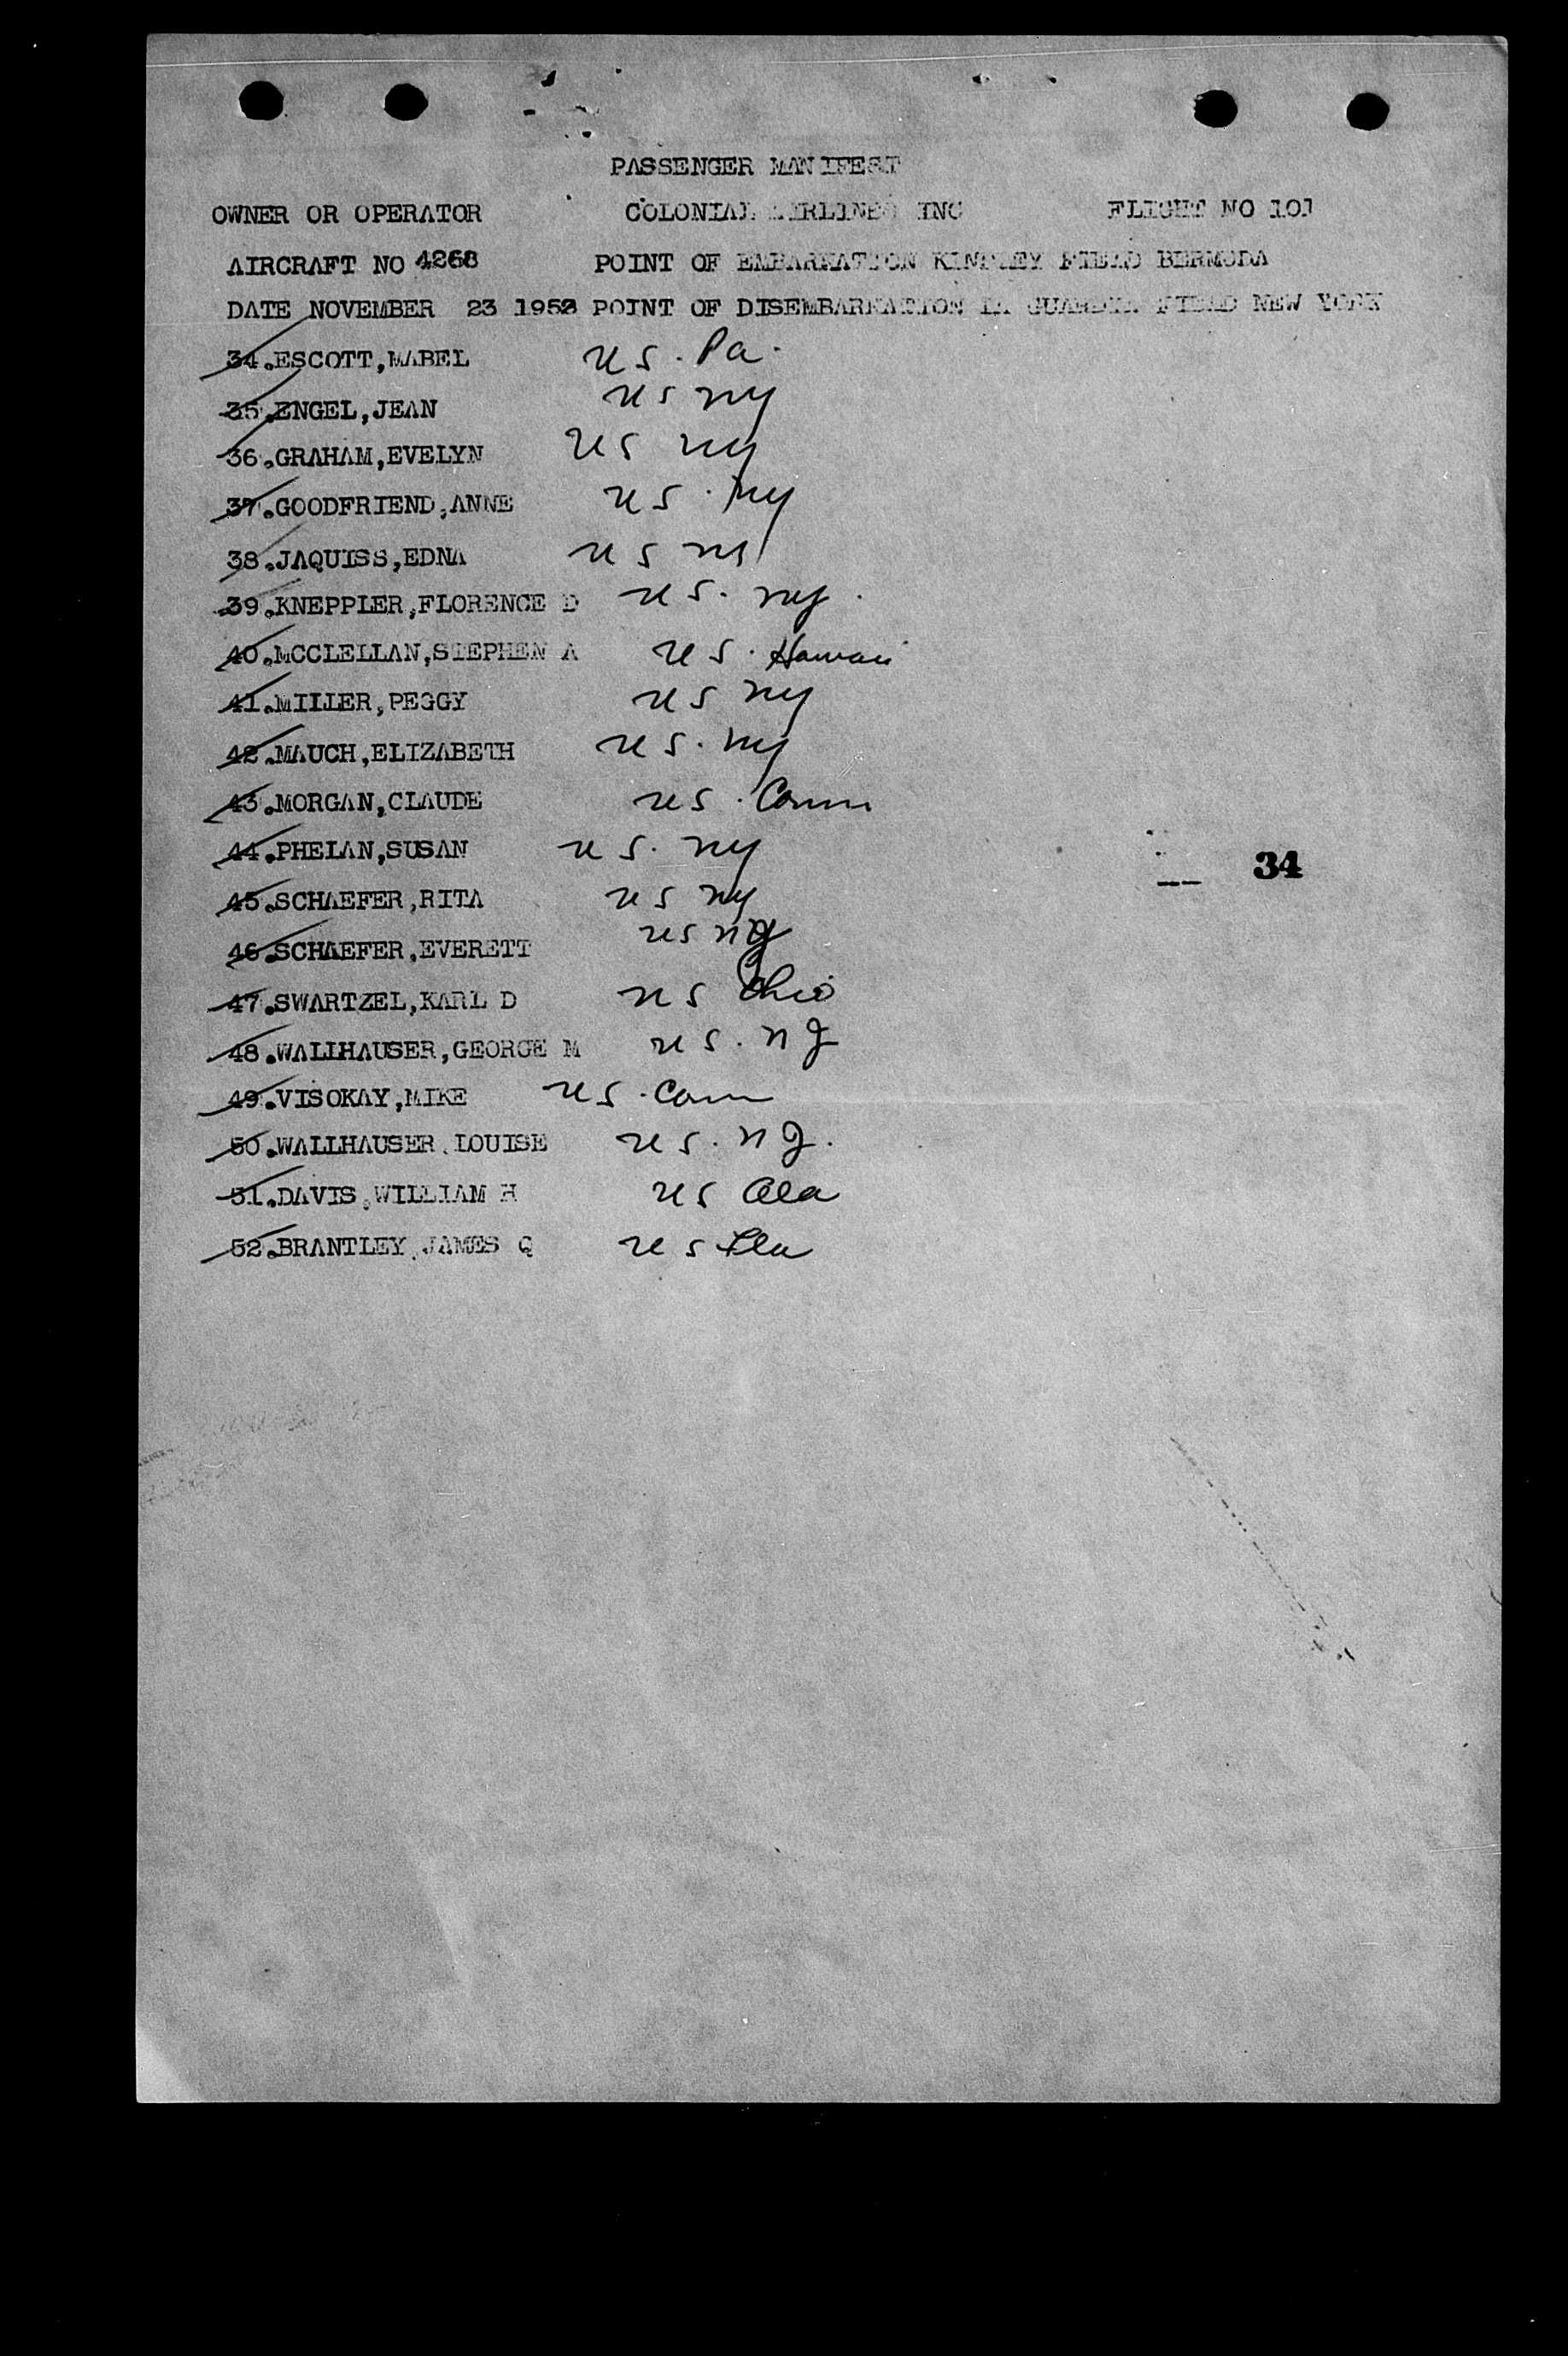 PASSENGER MANIFEST
OWNER OR OPERATOR COLONIAL AIRLINES INC FLIGHT NO 101
AIRCRAFT NO 4268 POINT OF EMBARKATION KINDLEY FIELD BERMUDA
DATE NOVEMBER 23 1952 POINT OF DISEMBARKATION LA GUARDIA FIELD NEW YORK
34.ESCOTT,MABEL US. Pa.
35.ENGEL,JEAN US NY
36.GRAHAM,EVELYN US NY
37.GOODFRIEND,ANNE US. NY
38.JAQUISS,EDNA US NY
39.KNEPPLER,FLORENCE D US. NY.
40.MCCLELLAN,STEPHEN A US. Hawaii
41.MILLER,PEGGY US NY
42.MAUCH,ELIZABETH US. NY
43.MORGAN,CLAUDE US. Conn
44.PHELAN,SUSAN US. NY
45.SCHAEFER,RITA US NY
34
46.SCHAEFER,EVERETT US NY
47.SWARTZEL,KARL D US Ohio
48.WALLHAUSER,GEORGE M US. NJ
49.VISOKAY,MIKE US. Conn
50.WALLHAUSER,LOUISE US. NJ.
51.DAVIS,WILLIAM H US Ala
52.BRANTLEY,JAMES Q US Fla